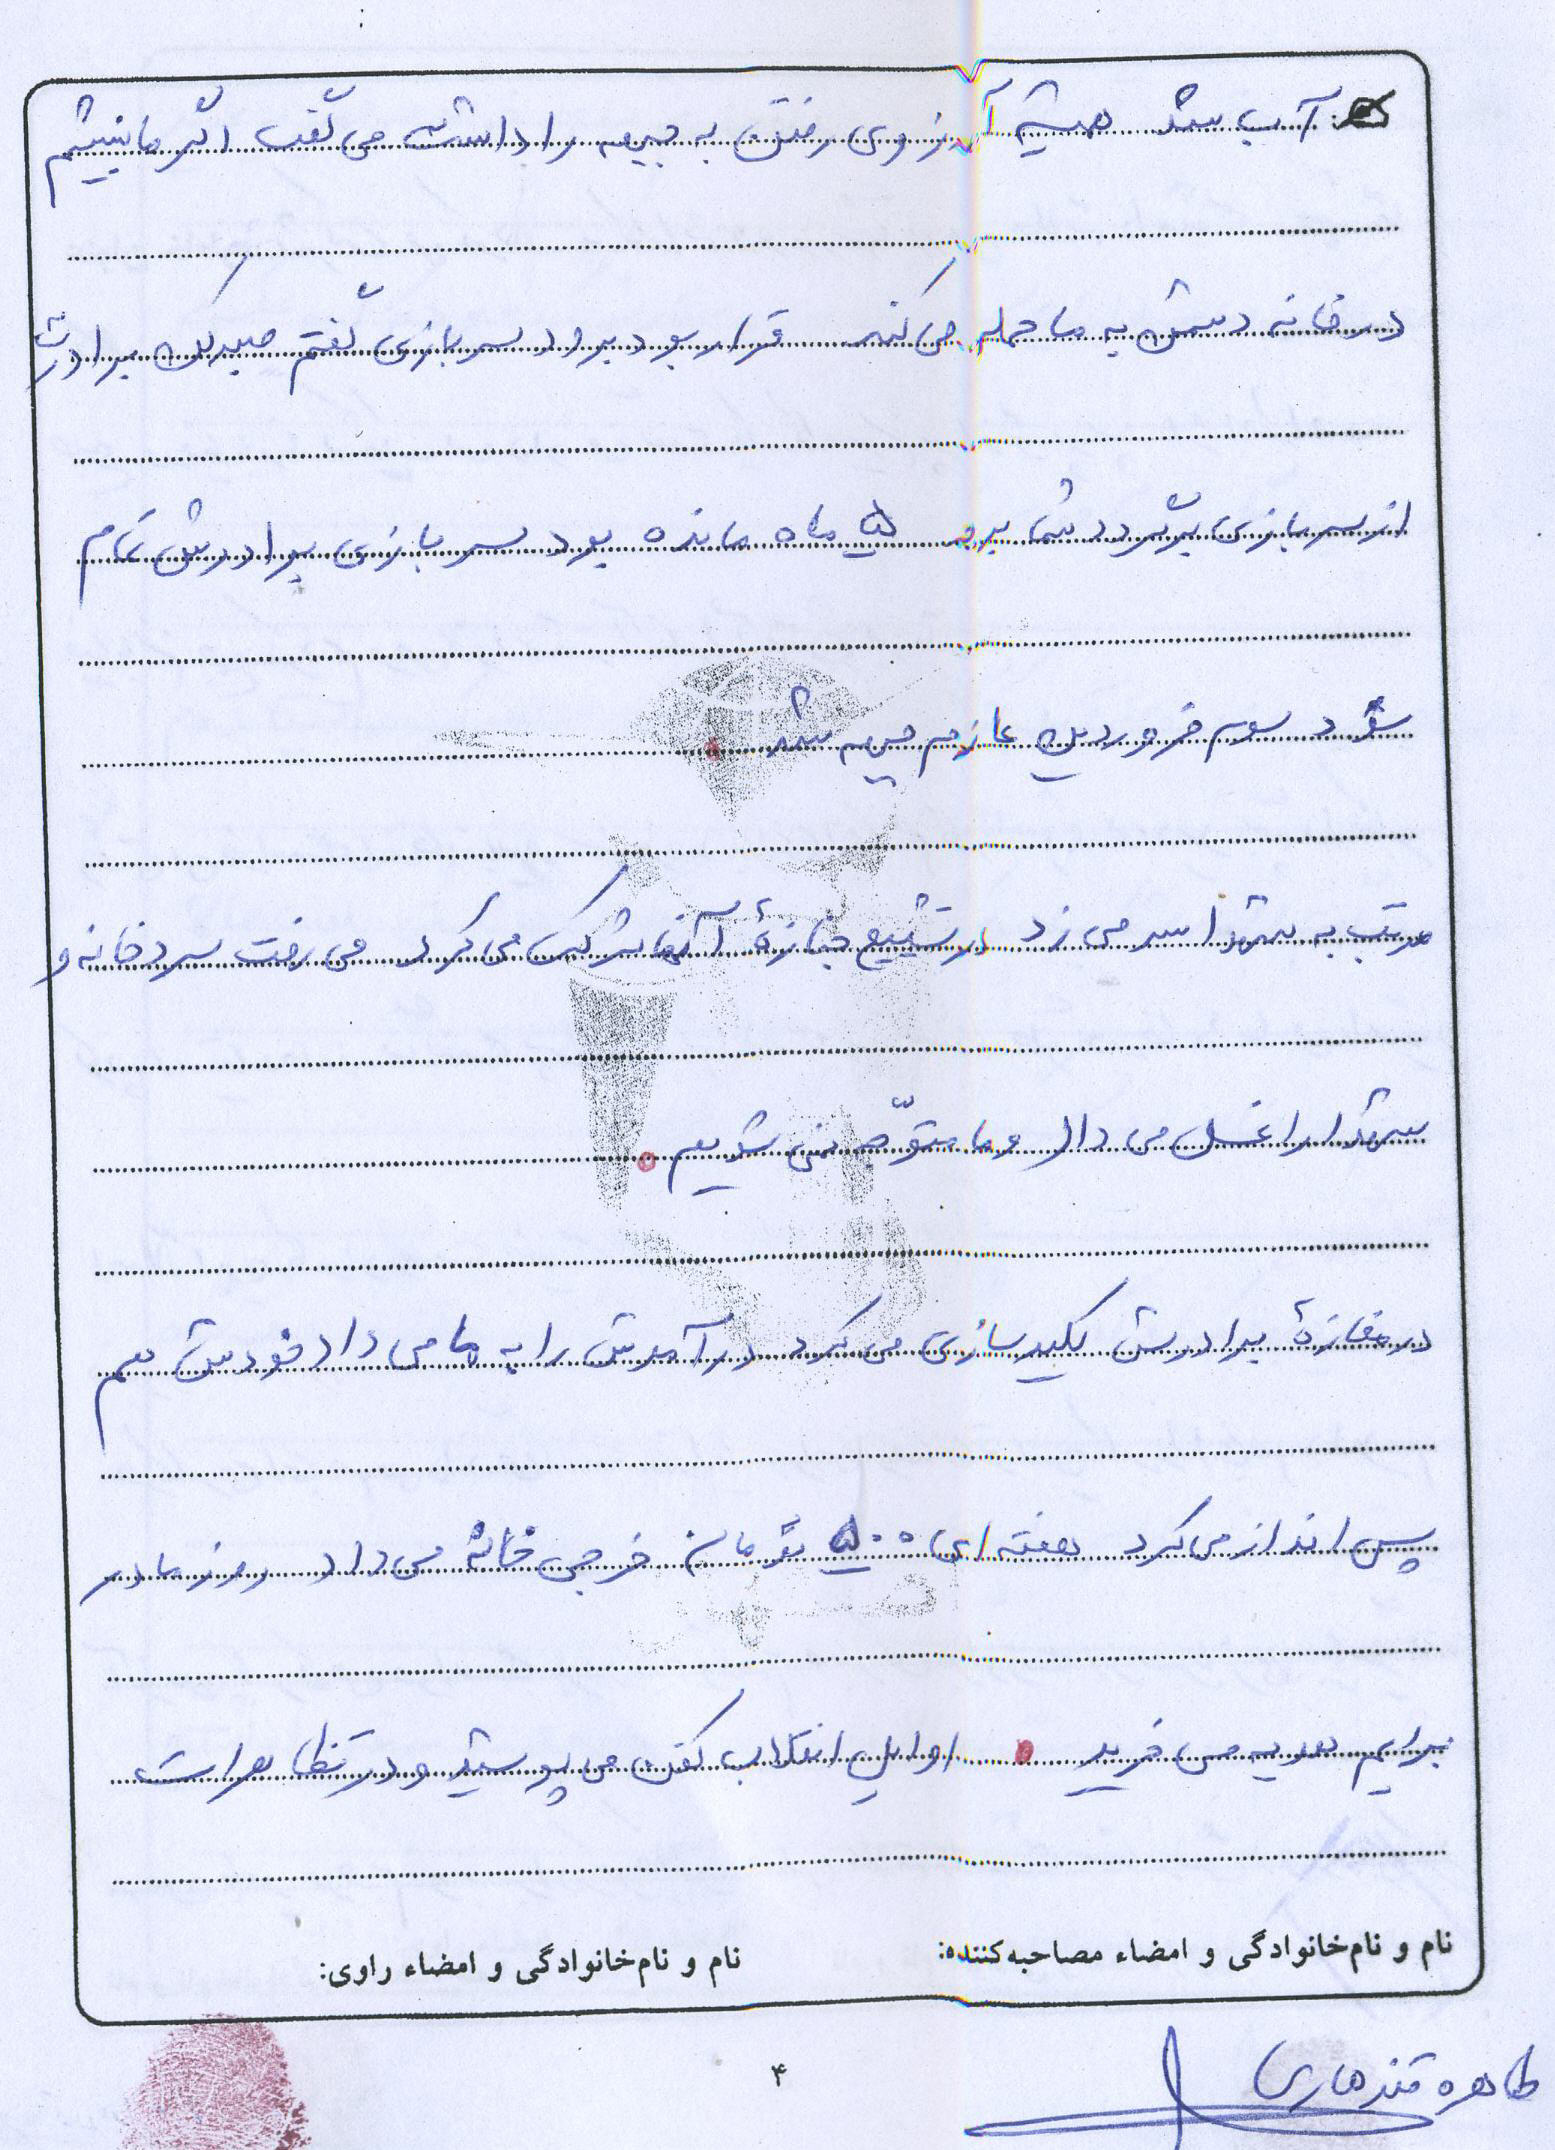 آب شد همیشه آرزوی رفتن به جبهه را داشت می گفت اگر ما بنشینیم
در خانه دشمن به ما حمله می کند قرار بود برود سربازی گفتم صبر کن برادرش
از سربازی برگردد شما برو ۵ ماه مانده بود سربازی برادرش تمام
شود سوم فروردین عازم جبهه شد.
مرتب به شهدا سر می زد در تشییع جنازهٔ آنها شرکت می کرد می رفت سردخانه و
شهدا را غسل می داد و ما متوجّه نمی شدیم.
در مغازهٔ برادرش کلیدسازی می کرد درآمدش را به ما می داد خودش هم
پس انداز می کرد هفته ای ۵۰۰ تومان خرجی خانه می داد روز مادر
برایم هدیه می خرید. اوایل انقلاب کفن می پوشید و در تظاهرات
نام و نام‌خانوادگی و امضاء مصاحبه‌کننده: نام و نام‌خانوادگی و امضاء راوی:
طاهره قندهاری
۴